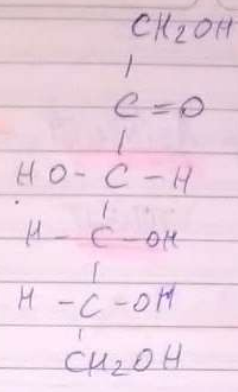 CH2OH
C=O
HO-C-H
H-C-OH
H-C-OH
CH2OH